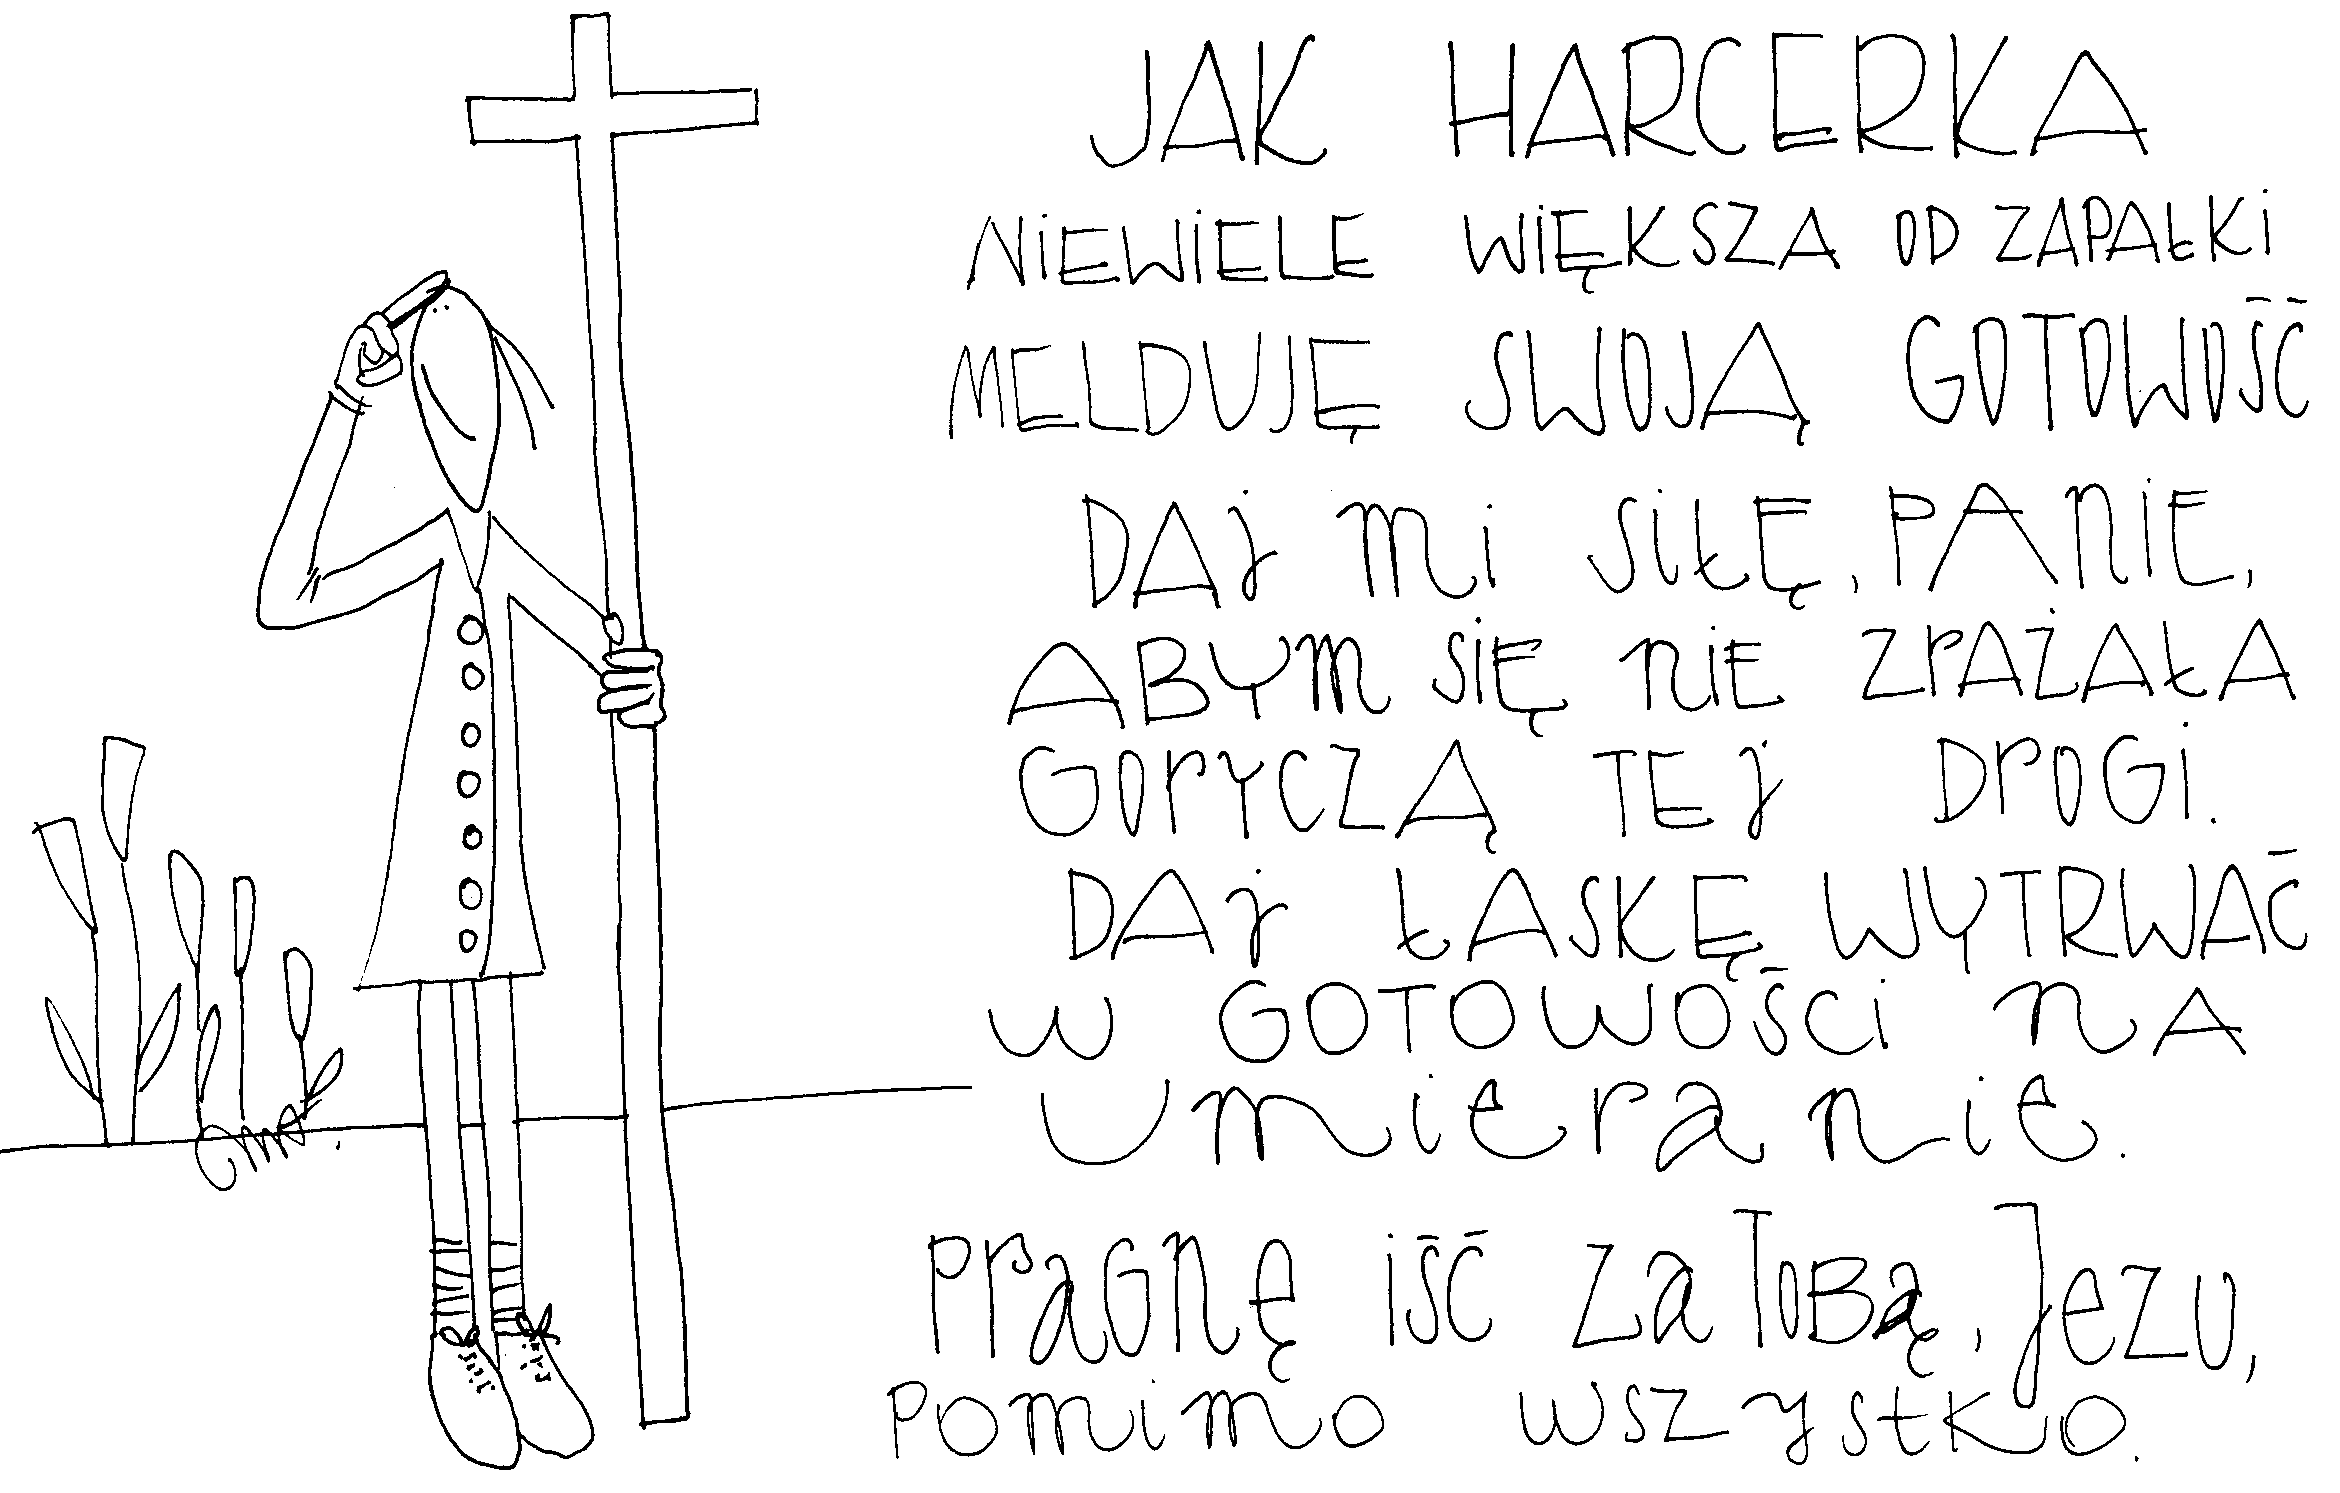 JAK HARCERKA
NIEWIELE WIĘKSZA OD ZAPAŁKI
MELDUJĘ SWOJĄ GOTOWOŚĆ
DAJ MI SIŁĘ, PANIE,
ABYM SIĘ NIE ZRAŻAŁA
GORYCZĄ TEJ DROGI.
DAJ ŁASKĘ WYTRWAĆ
W GOTOWOŚCI NA
UMIERANIE.
PRAGNĘ IŚĆ ZA TOBĄ, JEZU,
POMIMO WSZYSTKO.